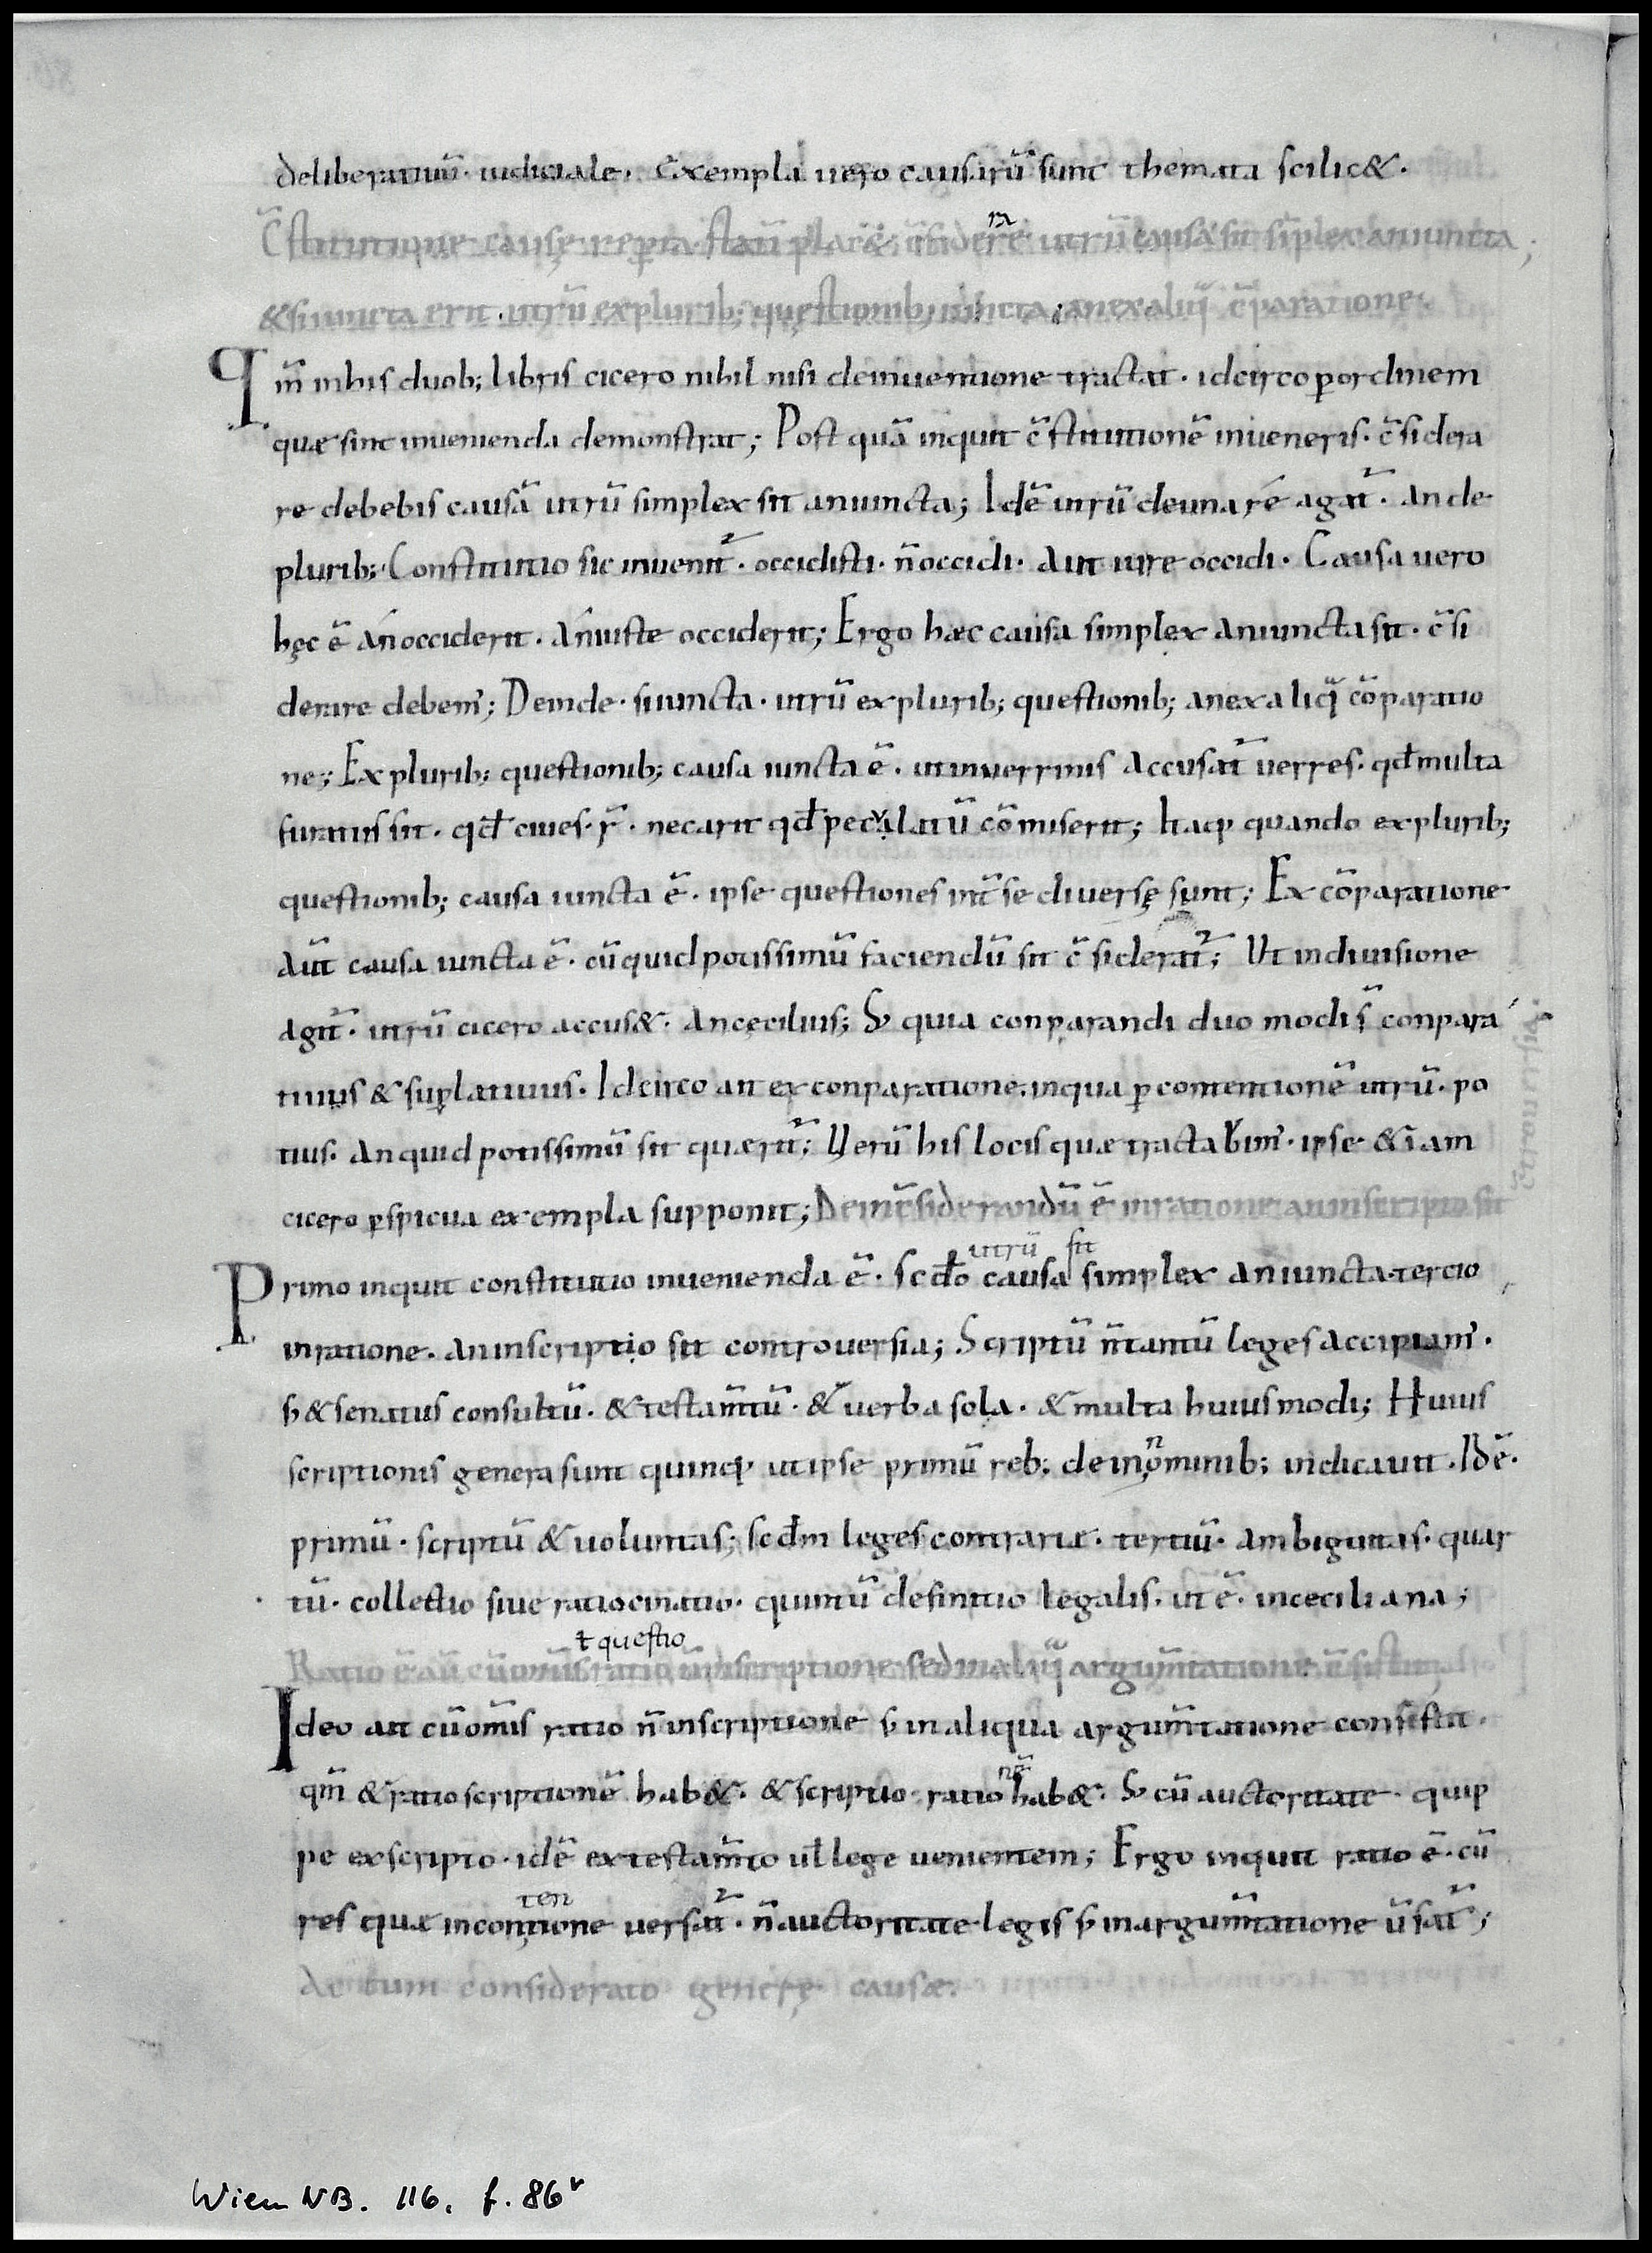 deliberatiuū· iudiciale· Exempla uero causarū sunt themata scilic&·
C̄stitutique causę reperta statū plac& c̄siderare utrū causa sit sīplex an iuncta;
& si iuncta erit utrū ex plurib; questionib; iuncta an ex aliq̄ c̄paratione·
Qm̄ in his duob; libris cicero nihil nisi de inuentione tractat· idcirco ꝑ ordinem
quæ sint inuenienda demonstrat; Post quā inquit c̄stitutionē inueneris· c̄sidera
re debebis causā utrū simplex sit an iuncta; Idē utrū de una ré agat̄· an de
plurib; Constitutio sic inuenit̄· occidisti· n̄ occidi· aut iure occidi· Causa uero
hęc ē án occiderit· án iuste occiderit; Ergo hæc causa simplex an iuncta sit· c̄si
derare debem'; Deinde· si iuncta· utrū ex plurib; questionib; an ex aliq̄ cōparatio
ne; Ex plurib; questionib; causa iuncta ē· ut in uerrinis accusat̄ uerres· qđ multa
furatus sit· qđ ciues· r̄· necarit qđ peculatū cōmiserit; Itaq; quando ex plurib;
questionib; causa iuncta ē· ipse questiones int̄ se diuersę sunt; Ex cōparatione
aut̄ causa iuncta ē· cū quid potissimū faciendū sit c̄siderat̄; Ut in diuisione
agit̄· utrū cicero accus&· an cęcilius; S; quia conparandi duo modi s̄ conpara
tiuus & suꝑlatiuus· Idcirco aut ex conparatione· in qua ꝑ contentionē utrū· po
tius· an quid potissimū sit quærit̄; Uerū his locis quæ tractabim'· ipse &iam
cicero ꝑspicua exempla supponit; Dein c̄siderandū ē in ratione an in scripto sit
utrū sit
Primo inquit constitutio inuenienda ē· scđo causa simplex an iuncta· tercio
in ratione· an in scriptio sit controuersia; Scriptū n̄ tantū leges accipiam'·
s; & senatus consultū· & testam̄tū· & uerba sola· & multa huius modi; Huius
scriptionis genera sunt quinq; ut ipse primū reb; dein nominib; indicauit· Idē·
primū· scriptū & uoluntas; scđm leges contrariæ· tertiū· ambiguitas· quar
tū· collectio siue ratiocinatio· quintū definitio legalis· ut ē· in ceciliana;
ł questio
Ratio ē aut̄ cū om̄is ratio n̄ in scriptione sed in aliq̄ argum̄tatione c̄sistit
Ideo aut cū om̄is ratio n̄ in scriptione s; in aliqua argum̄tatione consistit·
qm̄ & ratio scriptionē hab&· & scriptio rationē hab&· S; cū auctoritate· quip
pe ex scripto· idē ex testam̄to uł lege uenientem; Ergo inquit ratio ē· cū
ten
res quæ in contione uersat̄· n̄ auctoritate legis s; in argum̄tatione ūsat̄;
Ac tum considerato genere causæ·
Wien NB. 116, f. 86ᵛ